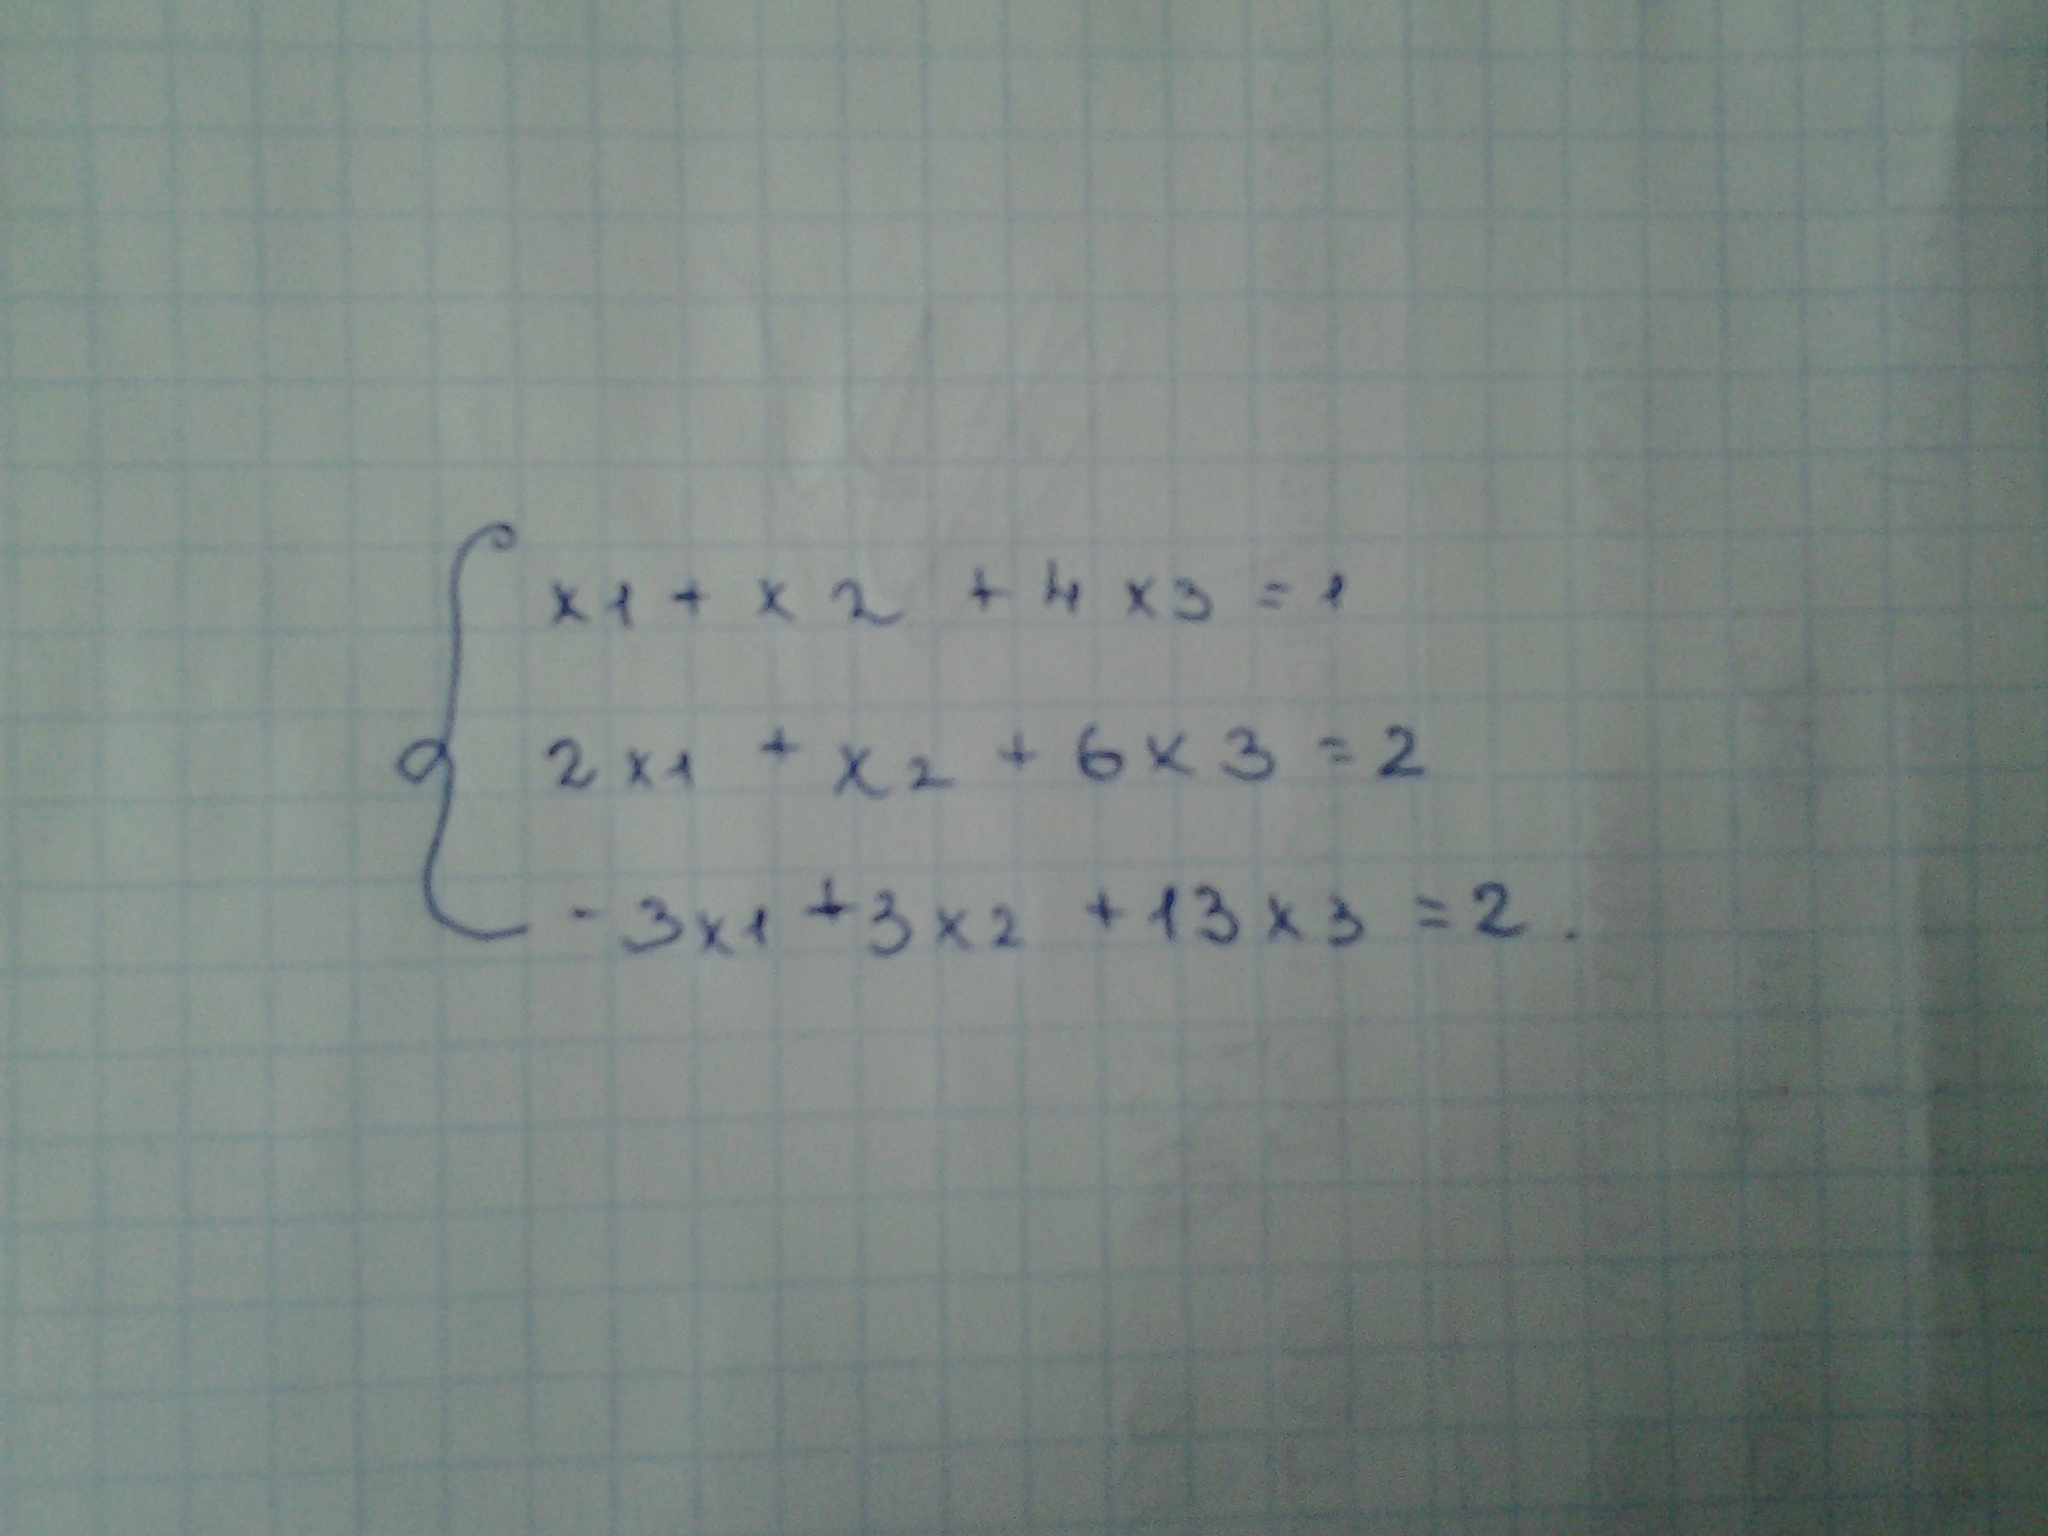 x1 + x2 + 4x3 = 1
2x1 + x2 + 6x3 = 2
-3x1 + 3x2 + 13x3 = 2.